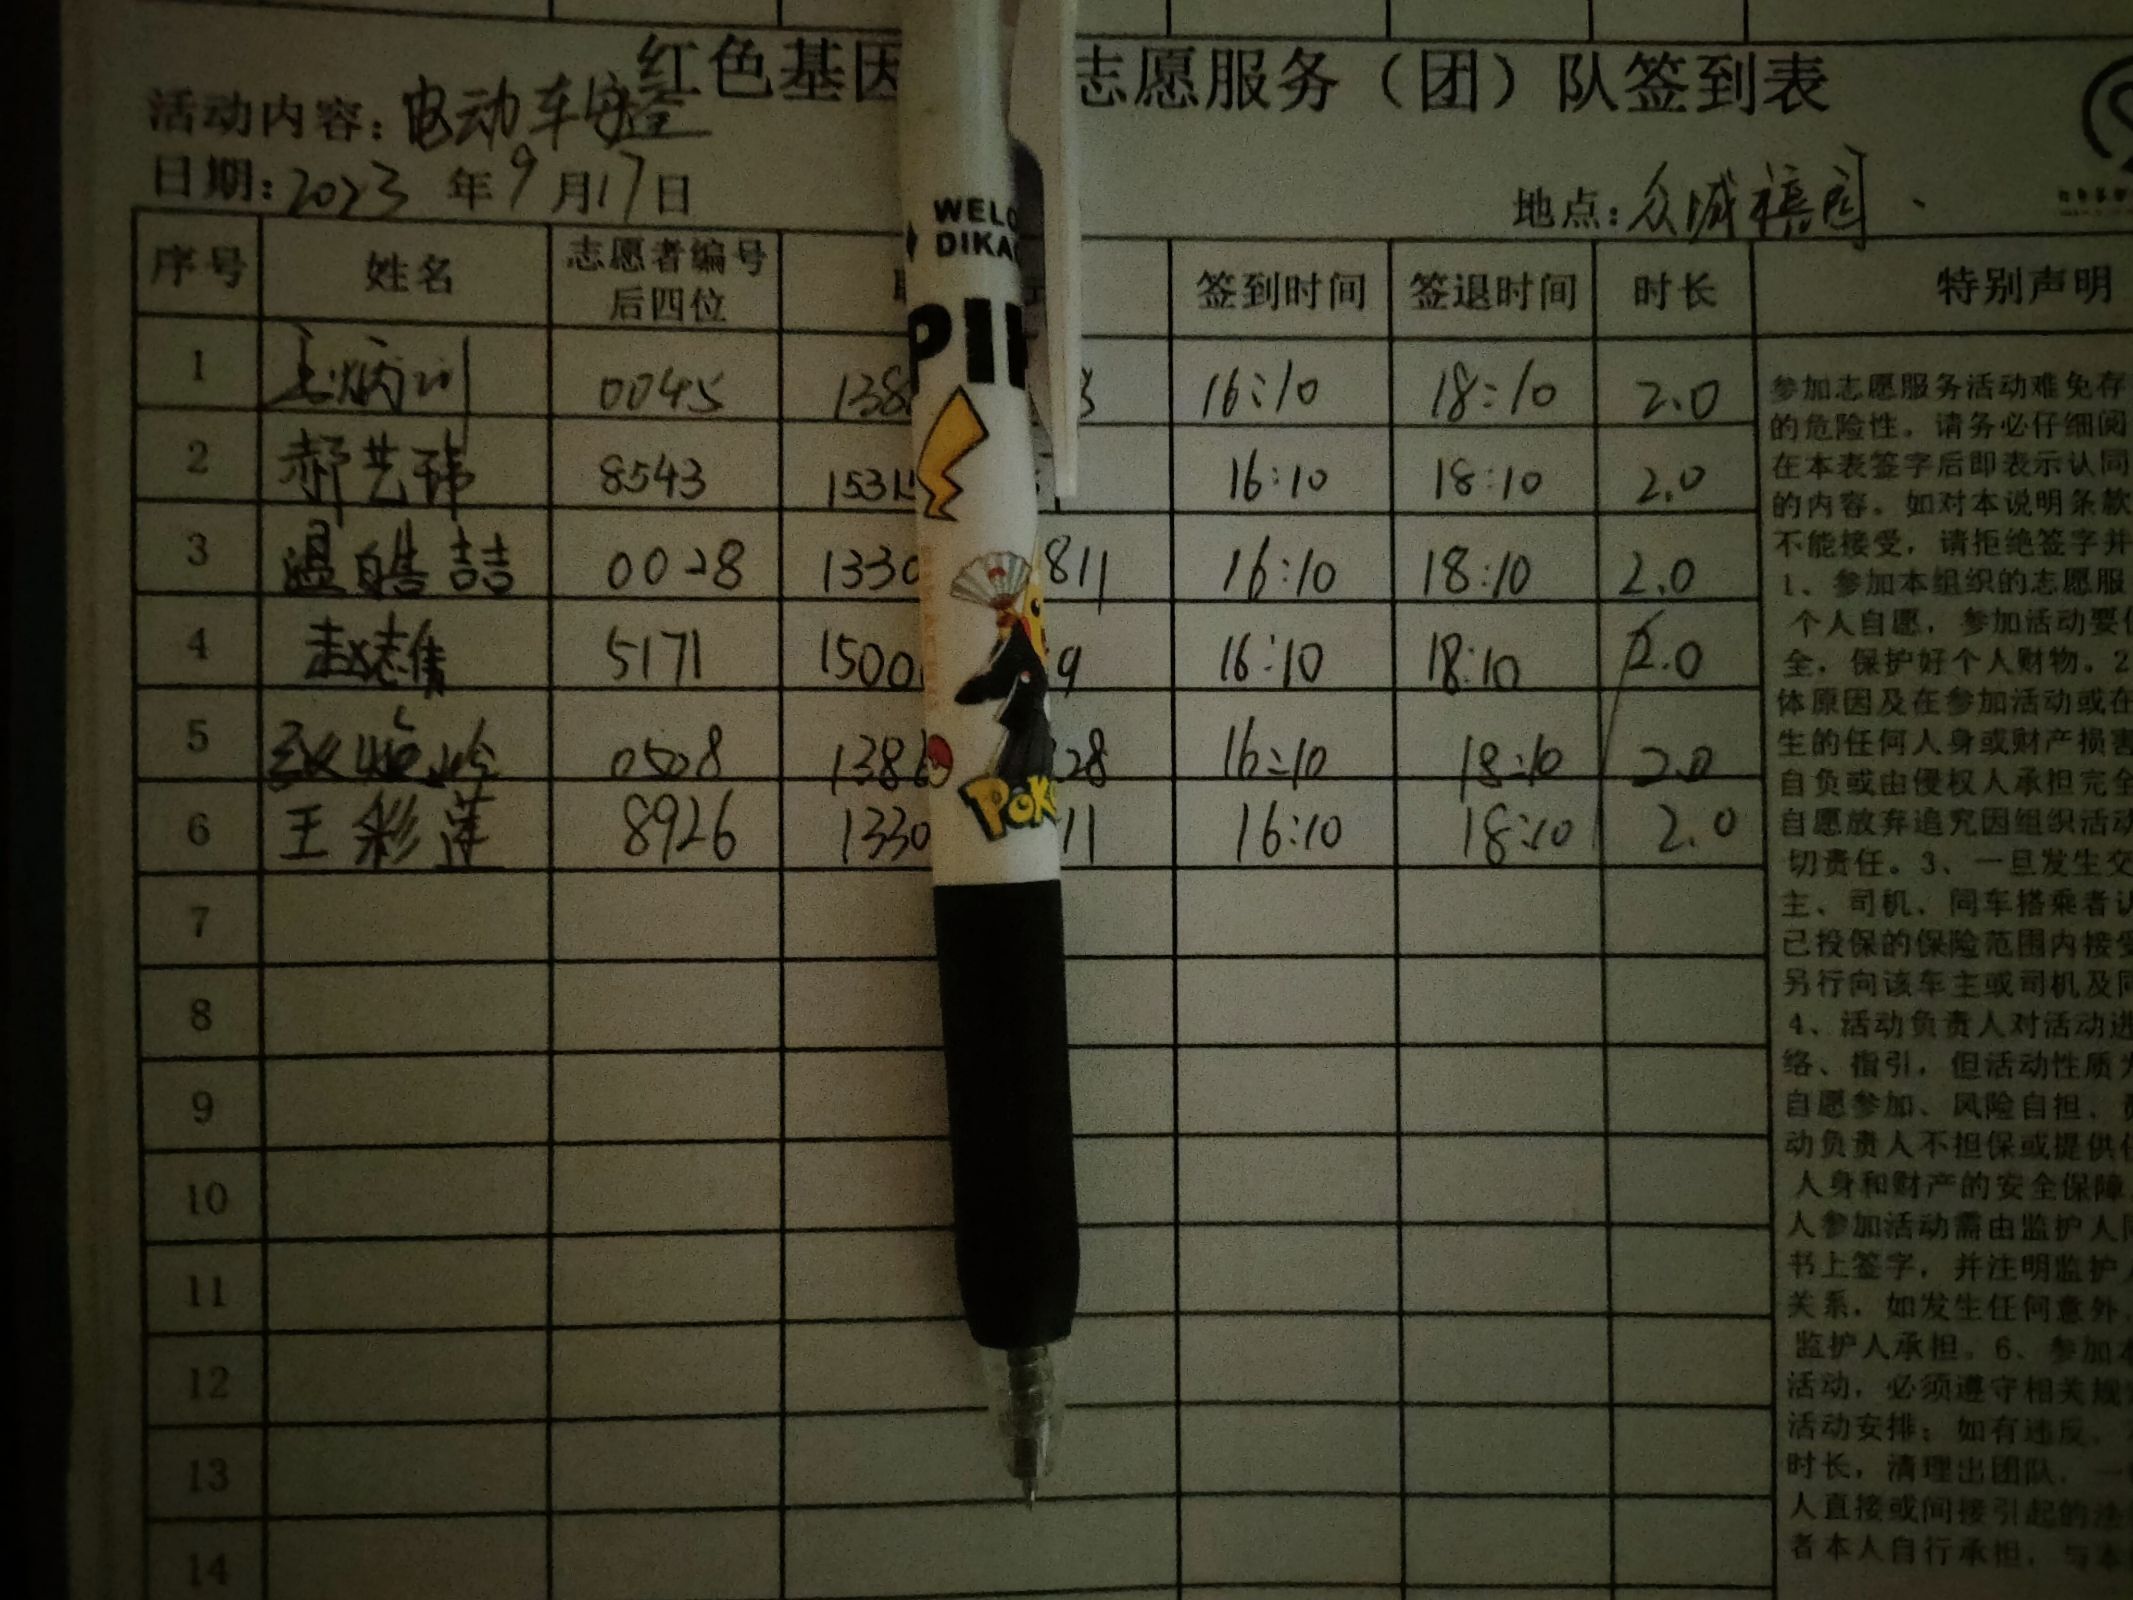 红色基因 志愿服务（团）队签到表
活动内容：电动车安全
日期：2023 年9月17日
地点：众城禧园
序号 姓名 志愿者编号后四位 签到时间 签退时间 时长 特别声明
1 0045 138 3 16:10 18:10 2.0
2 郝艺玮 8543 1531 16:10 18:10 2.0
3 温皓喆 0028 1330 811 16:10 18:10 2.0
4 赵雄 5171 1500 9 16:10 18:10 2.0
5 0508 138 28 16:10 18:10 2.0
6 王彩莲 8926 1330 11 16:10 18:10 2.0
7
8
9
10
11
12
13
14
参加志愿服务活动难免存
的危险性。请务必仔细阅
在本表签字后即表示认同
的内容。如对本说明条款
不能接受，请拒绝签字并
1、参加本组织的志愿服
个人自愿，参加活动要
全，保护好个人财物。2
体原因及在参加活动或在
生的任何人身或财产损害
自负或由侵权人承担完全
自愿放弃追究因组织活动
切责任。3、一旦发生交
主、司机、同车搭乘者认
已投保的保险范围内接受
另行向该车主或司机及同
4、活动负责人对活动进
络、指引，但活动性质为
自愿参加、风险自担、
动负责人不担保或提供
人身和财产的安全保障
人参加活动需由监护人
书上签字，并注明监护
关系，如发生任何意外，
监护人承担。6、参加本
活动，必须遵守相关规
活动安排；如有违反，
时长，清理出团队，一
人直接或间接引起的法
者本人自行承担，与本
WELC
DIKA
PIK
POK